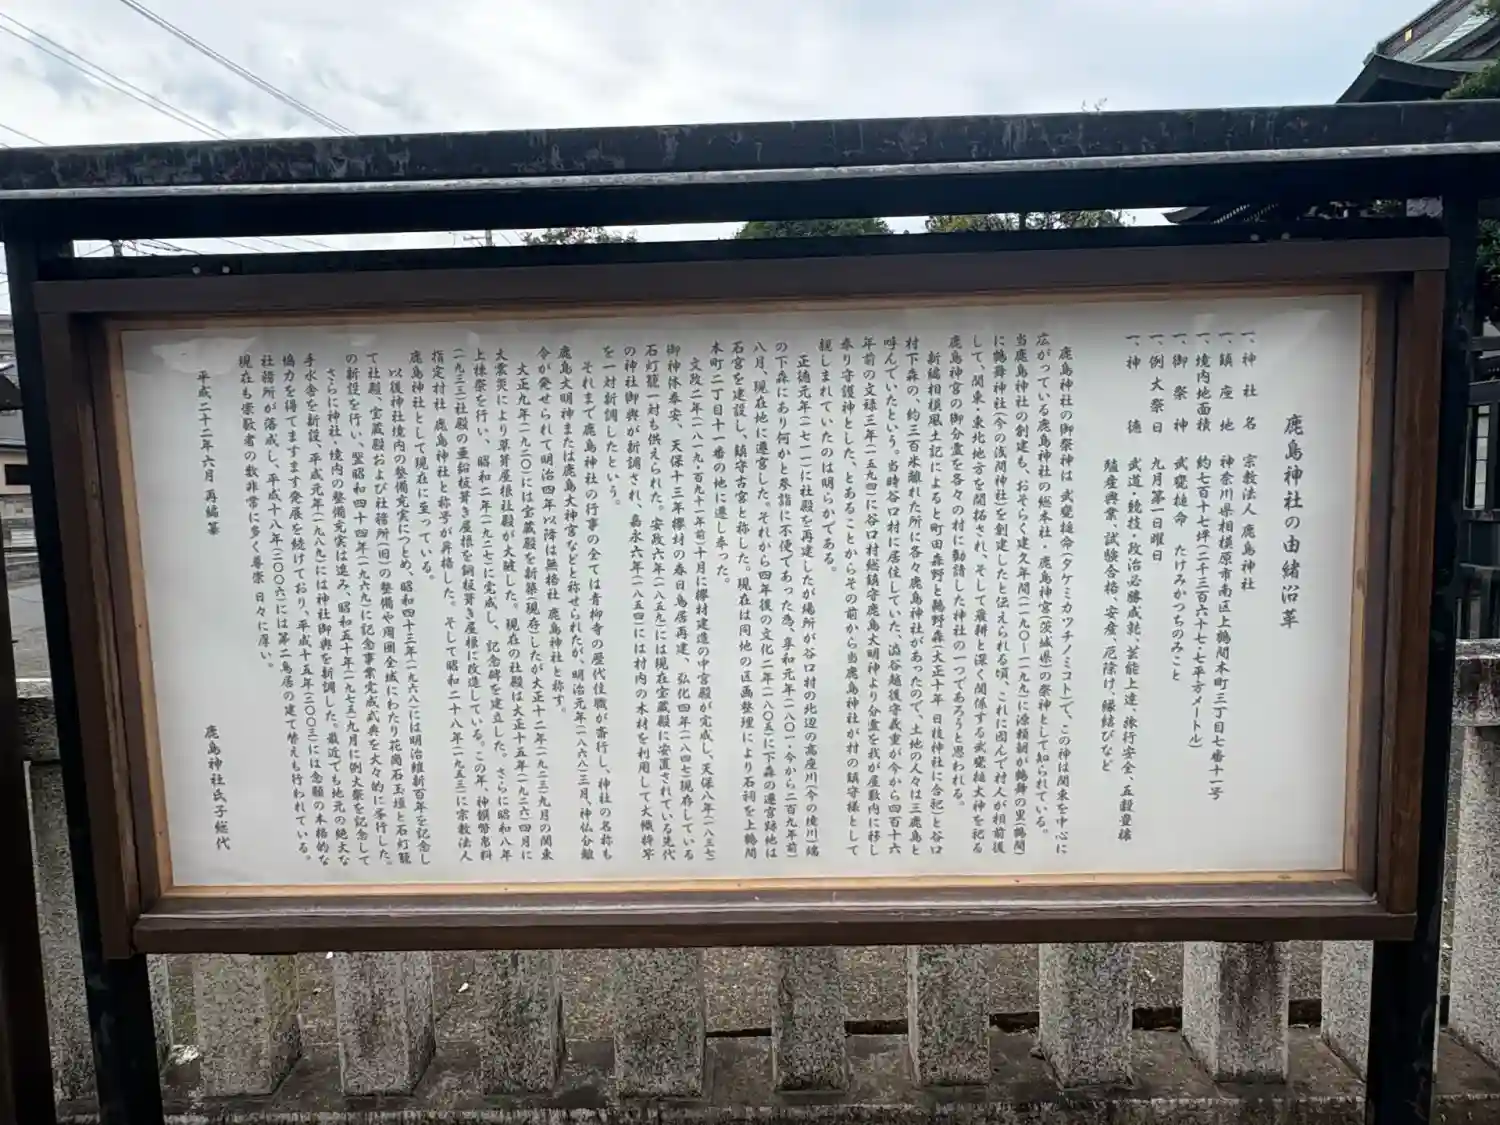 鹿島神社の由緒沿革
一、神社名 宗教法人 鹿島神社
一、鎮座地 神奈川県相模原市南区上鶴間本町三丁目七番十一号
一、境内地面積 約七百十七坪(二千三百六十七・七平方メートル)
一、御祭神 武甕槌命 たけみかつちのみこと
一、例大祭日 九月第一日曜日
一、神徳 武道・競技・政治必勝成就、芸能上達、旅行安全、五穀豊穣
殖産興業、試験合格、安産、厄除け、縁結びなど
鹿島神社の御祭神は 武甕槌命(タケミカヅチノミコト)で、この神は関東を中心に
広がっている鹿島神社の総本社・鹿島神宮(茨城県)の祭神として知られている。
当鹿島神社の創建も、おそらく建久年間(一一九〇~一一九九)に源頼朝が鶴舞の里(鶴間)
に鶴舞神社(今の浅間神社)を創建したと伝えられる頃、これに因んで村人が相前後
して、関東・東北地方を開拓され、そして農耕と深く関係する武甕槌大神を祀る
鹿島神宮の御分霊を各々の村に勧請した神社の一つであろうと思われる。
新編相模風土記によると町田森野と鵜野森(大正十年 日枝神社に合祀)と谷口
村下森の、約三百米離れた所に各々鹿島神社があったので、土地の人々は三鹿島と
呼んでいたという。当時谷口村に居住していた、澁谷越後守義重が今から四百十六
年前の文禄三年(一五九四)に谷口村総鎮守鹿島大明神より分霊を我が屋敷内に移し
奉り守護神とした、とあることからその前から当鹿島神社が村の鎮守様として
親しまれていたのは明らかである。
正徳元年(一七一一)に社殿を再建したが場所が谷口村の北辺の高座川(今の境川)端
の下森にあり何かと参詣に不便であった為、享和元年(一八〇一・今から二百九年前)
八月、現在地に遷宮した。それから四年後の文化二年(一八〇五)に下森の遷宮跡地は
石宮を建設し、鎮守古宮と称した。現在は同地の区画整理により石祠を上鶴間
本町二丁目十一番の地に遷し奉った。
文政二年(一八一九・百九十一年前)十月に欅材建造の中宮殿が完成し、天保八年(一八三七)
御神体奉安、天保十三年欅材の春日鳥居再建、弘化四年(一八四七)現存している
石灯籠一対も供えられた。安政六年(一八五九)には現在宝蔵殿に安置されている先代
の神社御輿が新調され、嘉永六年(一八五四)には村内の木材を利用して大幟枠竿
を一対新調したという。
それまで鹿島神社の行事の全ては青柳寺の歴代住職が斎行し、神社の名称も
鹿島大明神または鹿島大神宮などと称せられたが、明治元年(一八六八)三月、神仏分離
令が発せられて明治四年以降は無格社 鹿島神社と称す。
大正九年(一九二〇)には宝蔵殿を新築(現存)したが大正十二年(一九二三)九月の関東
大震災により草葺屋根社殿が大破した。現在の社殿は大正十五年(一九二六)四月に
上棟祭を行い、昭和二年(一九二七)に完成し、記念碑を建立した。さらに昭和八年
(一九三三)社殿の亜鉛板葺き屋根を銅板葺き屋根に改造している。この年、神饌幣帛料
指定村社 鹿島神社と称号が昇格した。そして昭和二十八年(一九五三)に宗教法人
鹿島神社として現在に至っている。
以後神社境内の整備充実につとめ、昭和四十三年(一九六八)には明治維新百年を記念し
て社殿、宝蔵殿および社務所(旧)の整備や周囲全域にわたり花崗石玉垣と石灯籠
の新設を行い、翌昭和四十四年(一九六九)に記念事業完成式典を大々的に斎行した。
さらに神社、境内の整備充実は進み、昭和五十年(一九七五)九月に例大祭を記念して
手水舎を新設、平成元年(一九八九)には神社御輿を新調した。最近でも地元の絶大な
協力を得てますます発展を続けており、平成十五年(二〇〇三)には念願の本格的な
社務所が落成し、平成十八年(二〇〇六)には第二鳥居の建て替えも行われている。
現在も崇敬者の数非常に多く尊崇 日々に厚い。
平成二十二年六月 再編纂
鹿島神社氏子総代